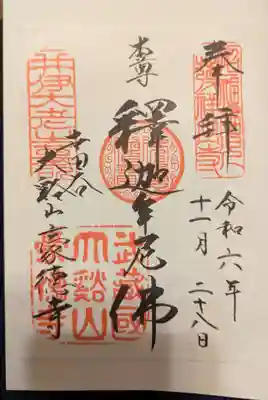 奉拝
令和六年
十一月二十八日
本尊
釋迦牟尼佛
世田谷
大谿山豪徳寺
井伊大老墓所
武蔵國
大谿山
豪徳寺